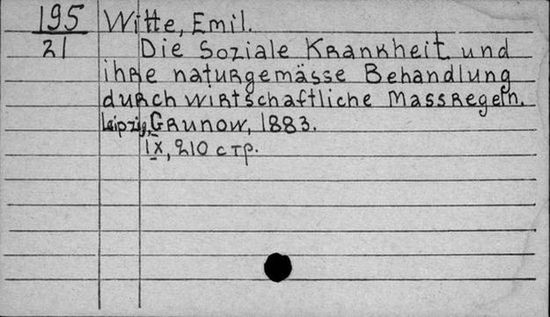 195 Witte, Emil.
21 Die Soziale Krankheit und
ihre naturgemässe Behandlung
durch wirtschaftliche Massregeln.
Leipzig, Grunow, 1883.
IX, 210 стр.